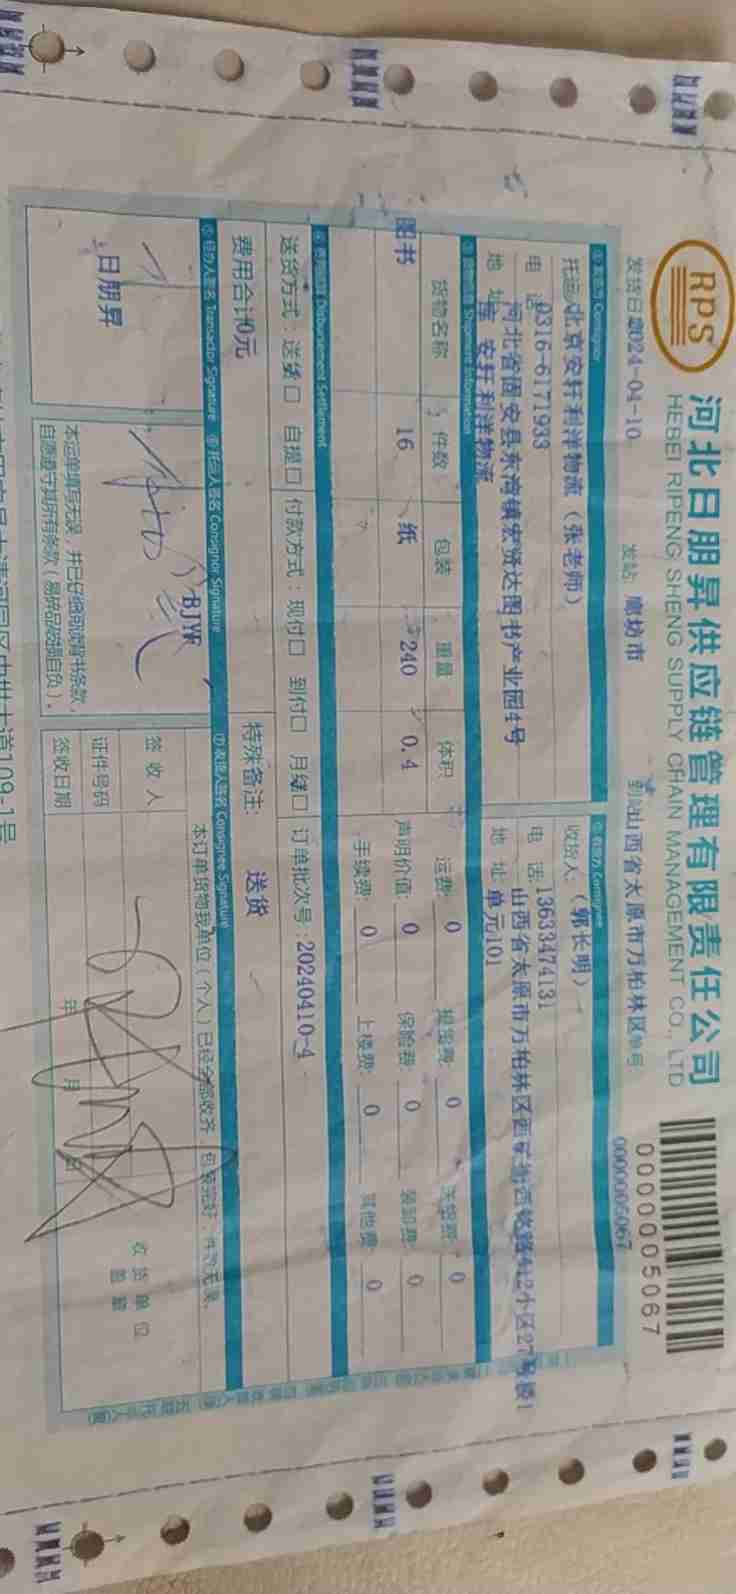 RPS
河北日朋昇供应链管理有限责任公司
HEBEI RIPENG SHENG SUPPLY CHAIN MANAGEMENT CO., LTD
00000005067
0000005067
发货日 2024-04-10 发站 廊坊市 到站 山西省太原市万柏林区 单号
①发货方 Consignor
托运 北京安轩利洋物流（张老师）
电 话 0316-6171933
河北省固安县东湾镇宏贤达图书产业园4号
地 址 库 安轩利洋物流
②收货方 Consignee
收货人：（郭长明）
电 话：13633474131
地 址：单元101
③货物信息 Shipment Information
货物名称 件数 包装 重量 体积
图书 16 纸 240 0.4
运费： 0 提货费： 0 0
声明价值： 0 保险费： 0 装卸费： 0
手续费： 0 上楼费： 0 其他费： 0
④费用结算 Disbursement Settlement
送货方式：送货□ 自提□ 付款方式：现付□ 到付□ 月结□ 订单批次号：20240410-4
费用合计0元 特殊备注： 送货
⑤经办人签名 Transactor Signature ⑥托运人签名 Consignor Signature ⑦收货人签名 Consignee Signature
日朋昇
BJYW
本运单填写无误，并已仔细阅读背书条款，
自愿遵守其所有条款（易碎品破损自负）。
本订单货物我单位（个人）已经全部收齐，包装完好，件数无误。
签 收 人
证件号码
签收日期 年 月 日
收 货 单 位
盖 章
大道109-1号